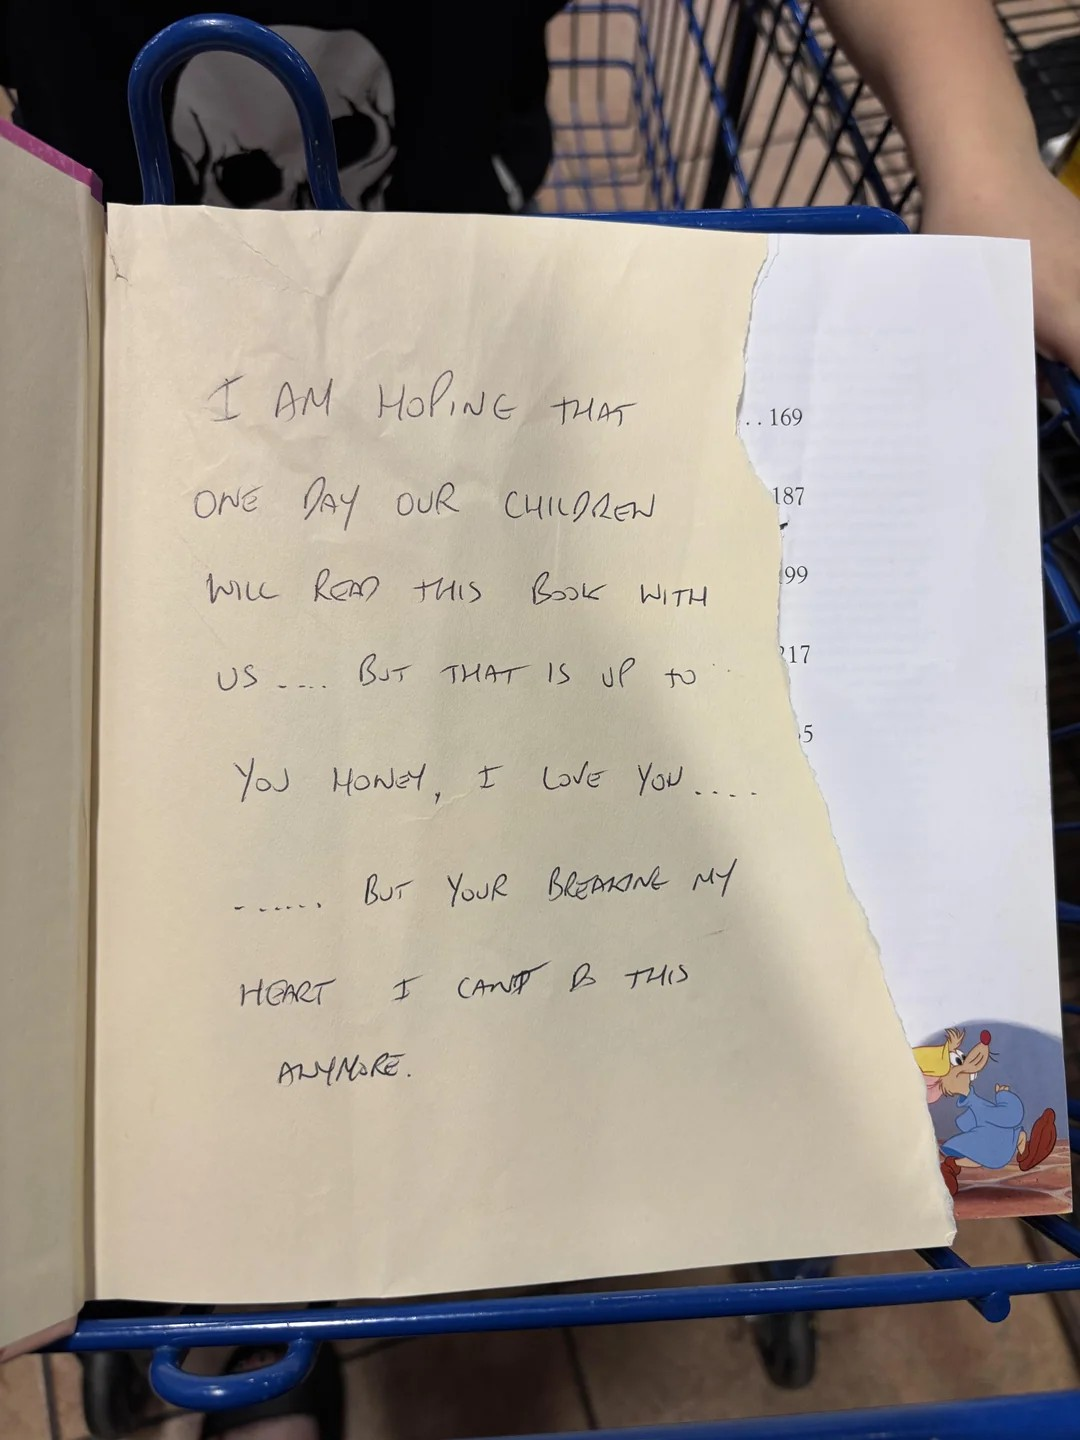 I AM HOPING THAT
ONE DAY OUR CHILDREN
WILL READ THIS BOOK WITH
US .... BUT THAT IS UP TO
YOU HONEY, I LOVE YOU ....
...... BUT YOUR BREAKING MY
HEART I CANT DO THIS
ANYMORE.
.. 169
187
99
217
5